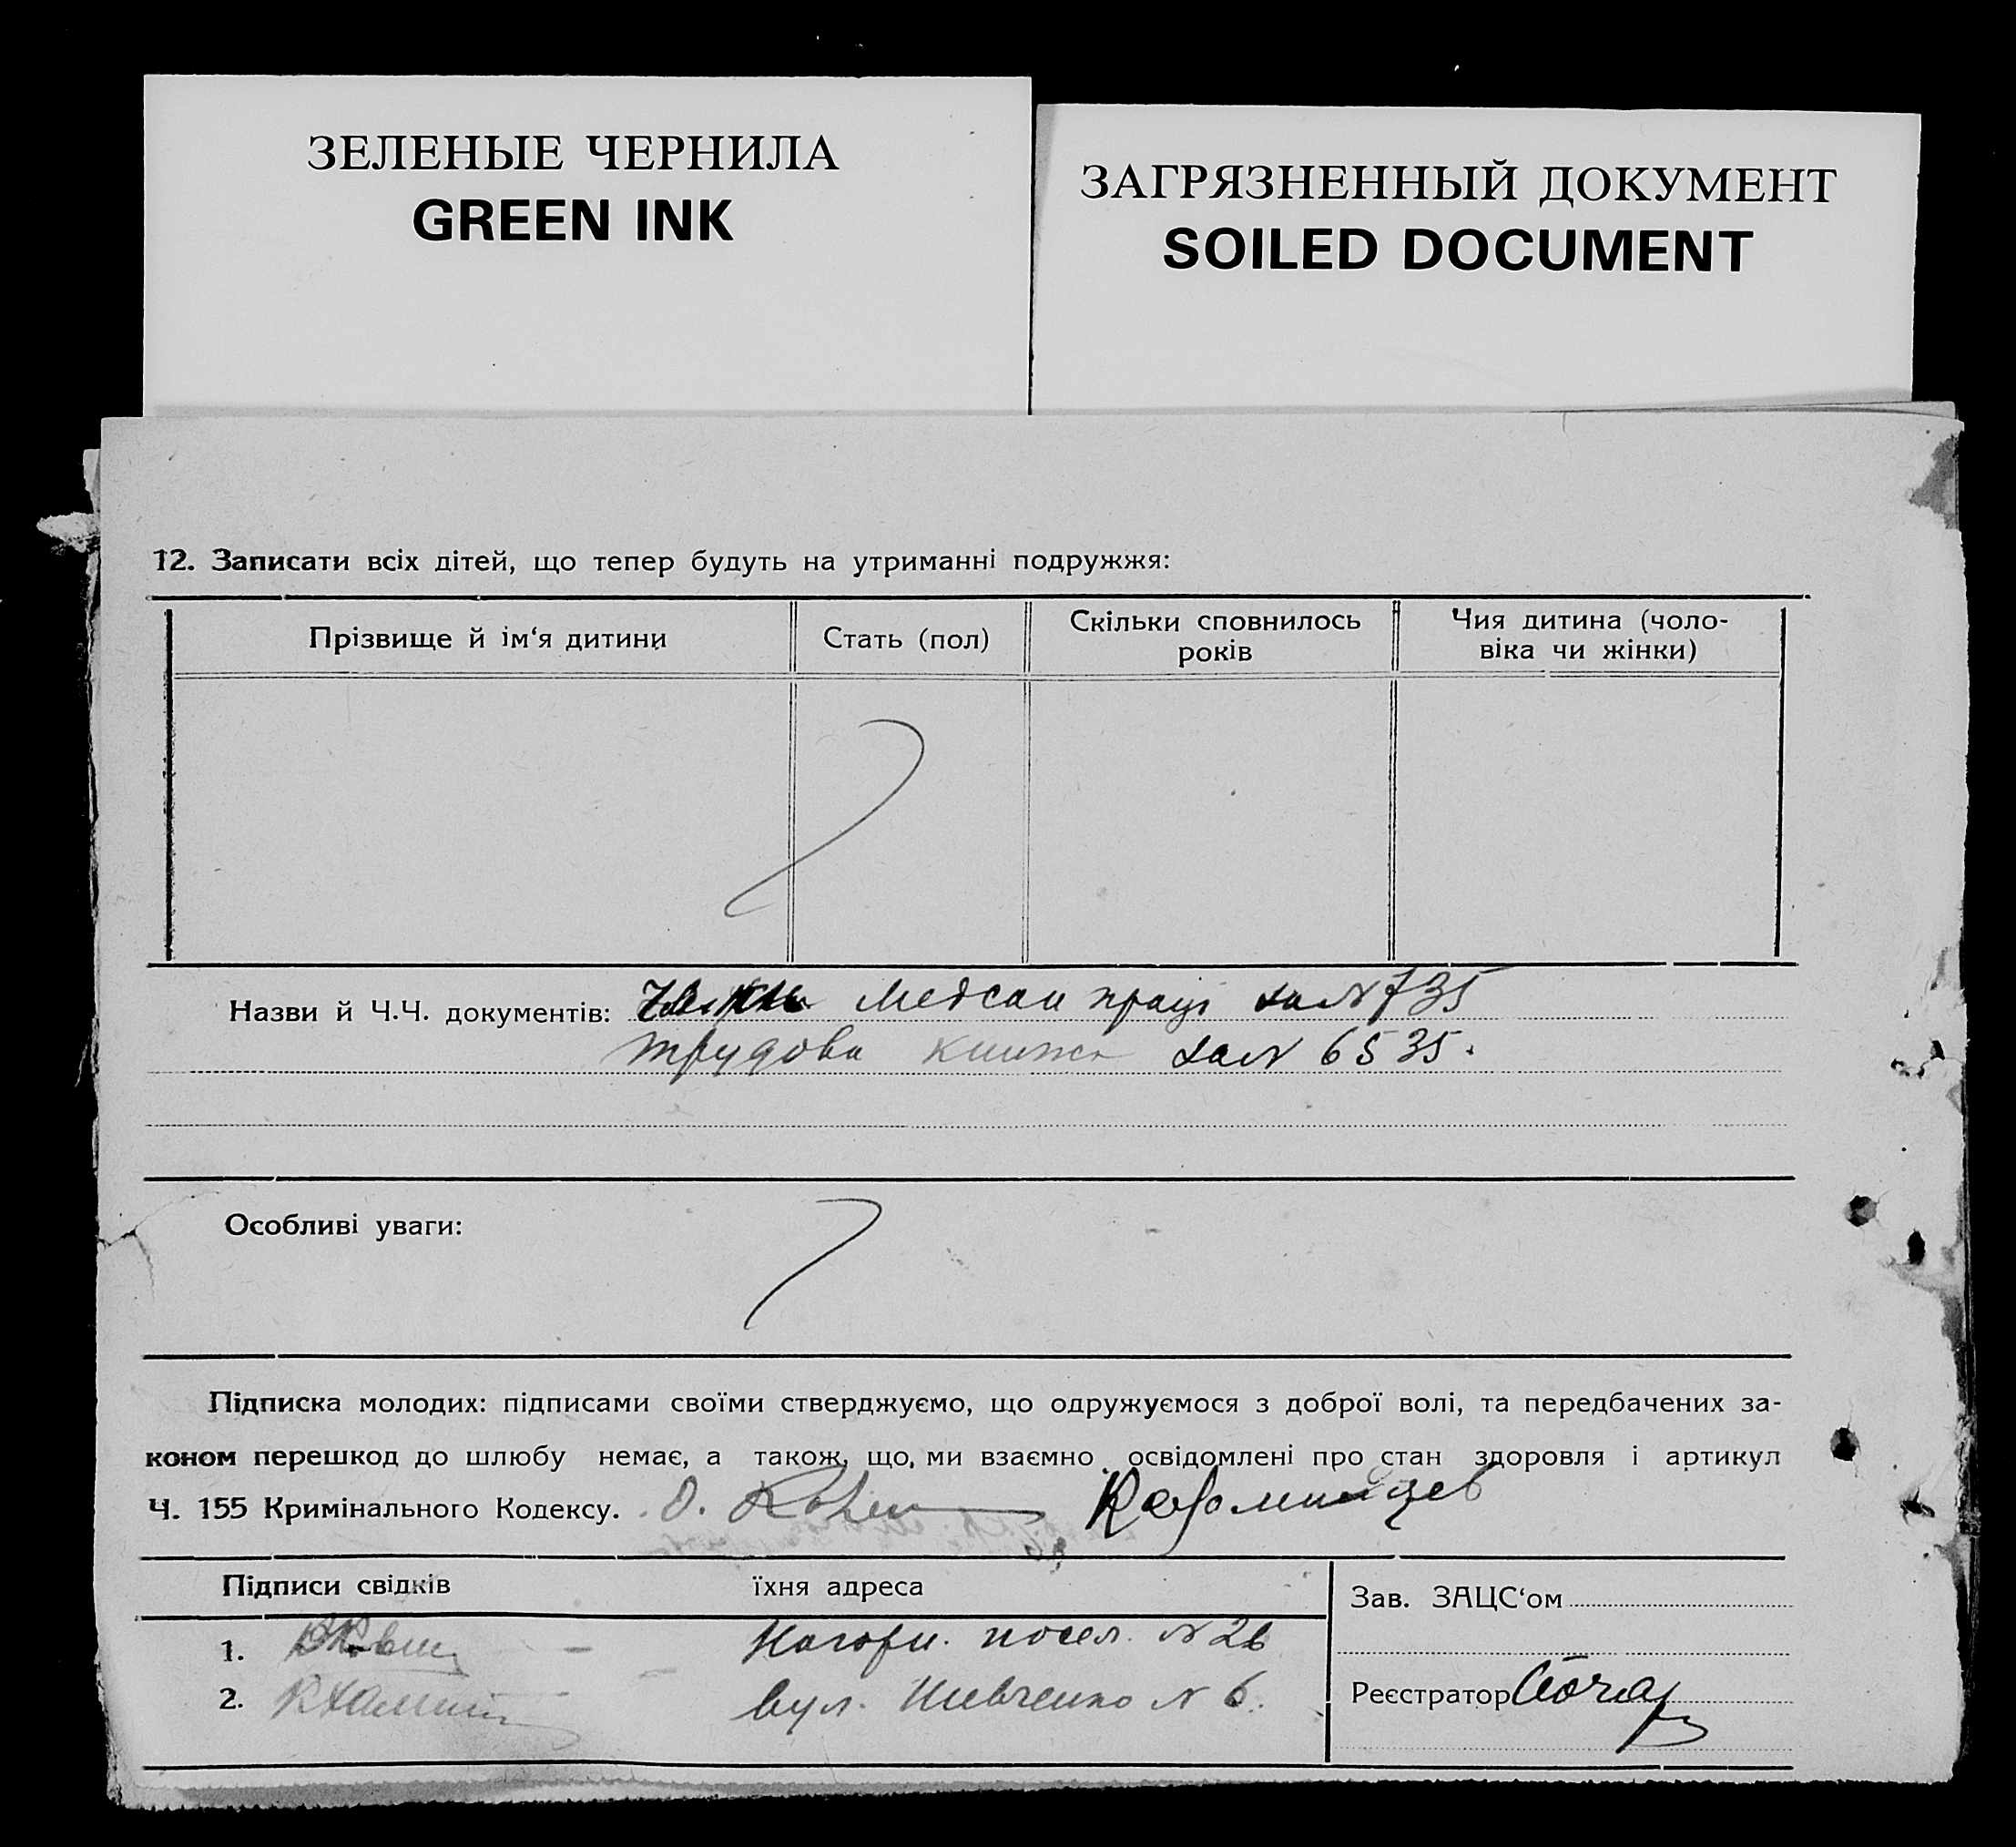 ЗЕЛЕНЫЕ ЧЕРНИЛА
GREEN INK
ЗАГРЯЗНЕННЫЙ ДОКУМЕНТ
SOILED DOCUMENT
12. Записати всіх дітей, що тепер будуть на утриманні подружжя:
Прізвище й ім‘я дитини
Стать (пол)
Скільки сповнилось
років
Чия дитина (чоло-
віка чи жінки)
Назви й Ч.Ч. документів: Медсан праці за№ 735
трудова книжка за№ 6535.
Особливі уваги:
Підписка молодих: підписами своїми стверджуємо, що одружуємося з доброї волі, та передбачених за-
коном перешкод до шлюбу немає, а також, що, ми взаємно освідомлені про стан здоровля і артикул
Ч. 155 Кримінального Кодексу.
Підписи свідків
їхня адреса
1. Нагорн. посел. №
2. вул. Шевченко № 6.
Зав. ЗАЦС‘ом
Реєстратор